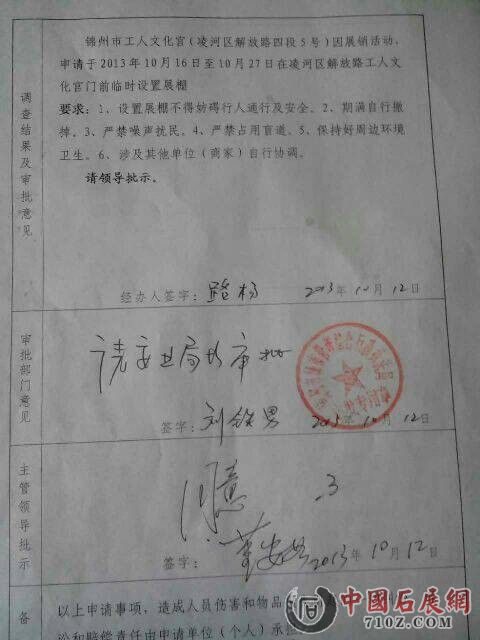 锦州市工人文化宫（凌河区解放路四段5号）因展销活动，
申请于2013年10月16日至10月27日在凌河区解放路工人文
化宫门前临时设置展棚
要求：1、设置展棚不得妨碍行人通行及安全。2、期满自行撤
掉。3、严禁噪声扰民。4、严禁占用盲道。5、保持好周边环境
卫生。6、涉及其他单位（商家）自行协调。
请领导批示。
调查结果及审批意见
经办人签字：路杨 2013年10月12日
审批部门意见
局长审批
签字：刘铁男 2013年10月12日
主管领导批示
同意
签字： 2013年10月12日
备
以上申请事项，造成人员伤害和物品
讼和赔偿责任由申请单位（个人）承担
中國石展網
710Z.COM